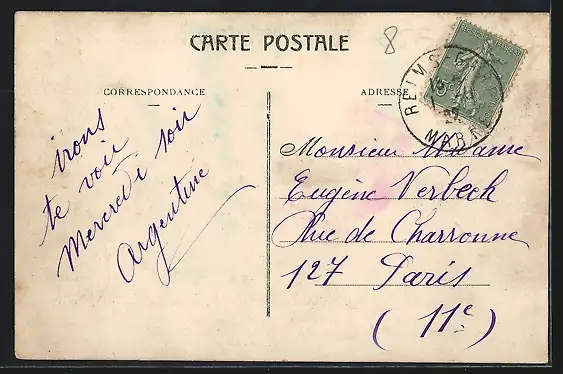 CARTE POSTALE
8
CORRESPONDANCE
ADRESSE
irons
te voir
Mercredi soir
Argentine
Monsieur Madame
Eugène Verbech
Rue de Charronne
127 Paris
(11e)
REIMS
MARNE